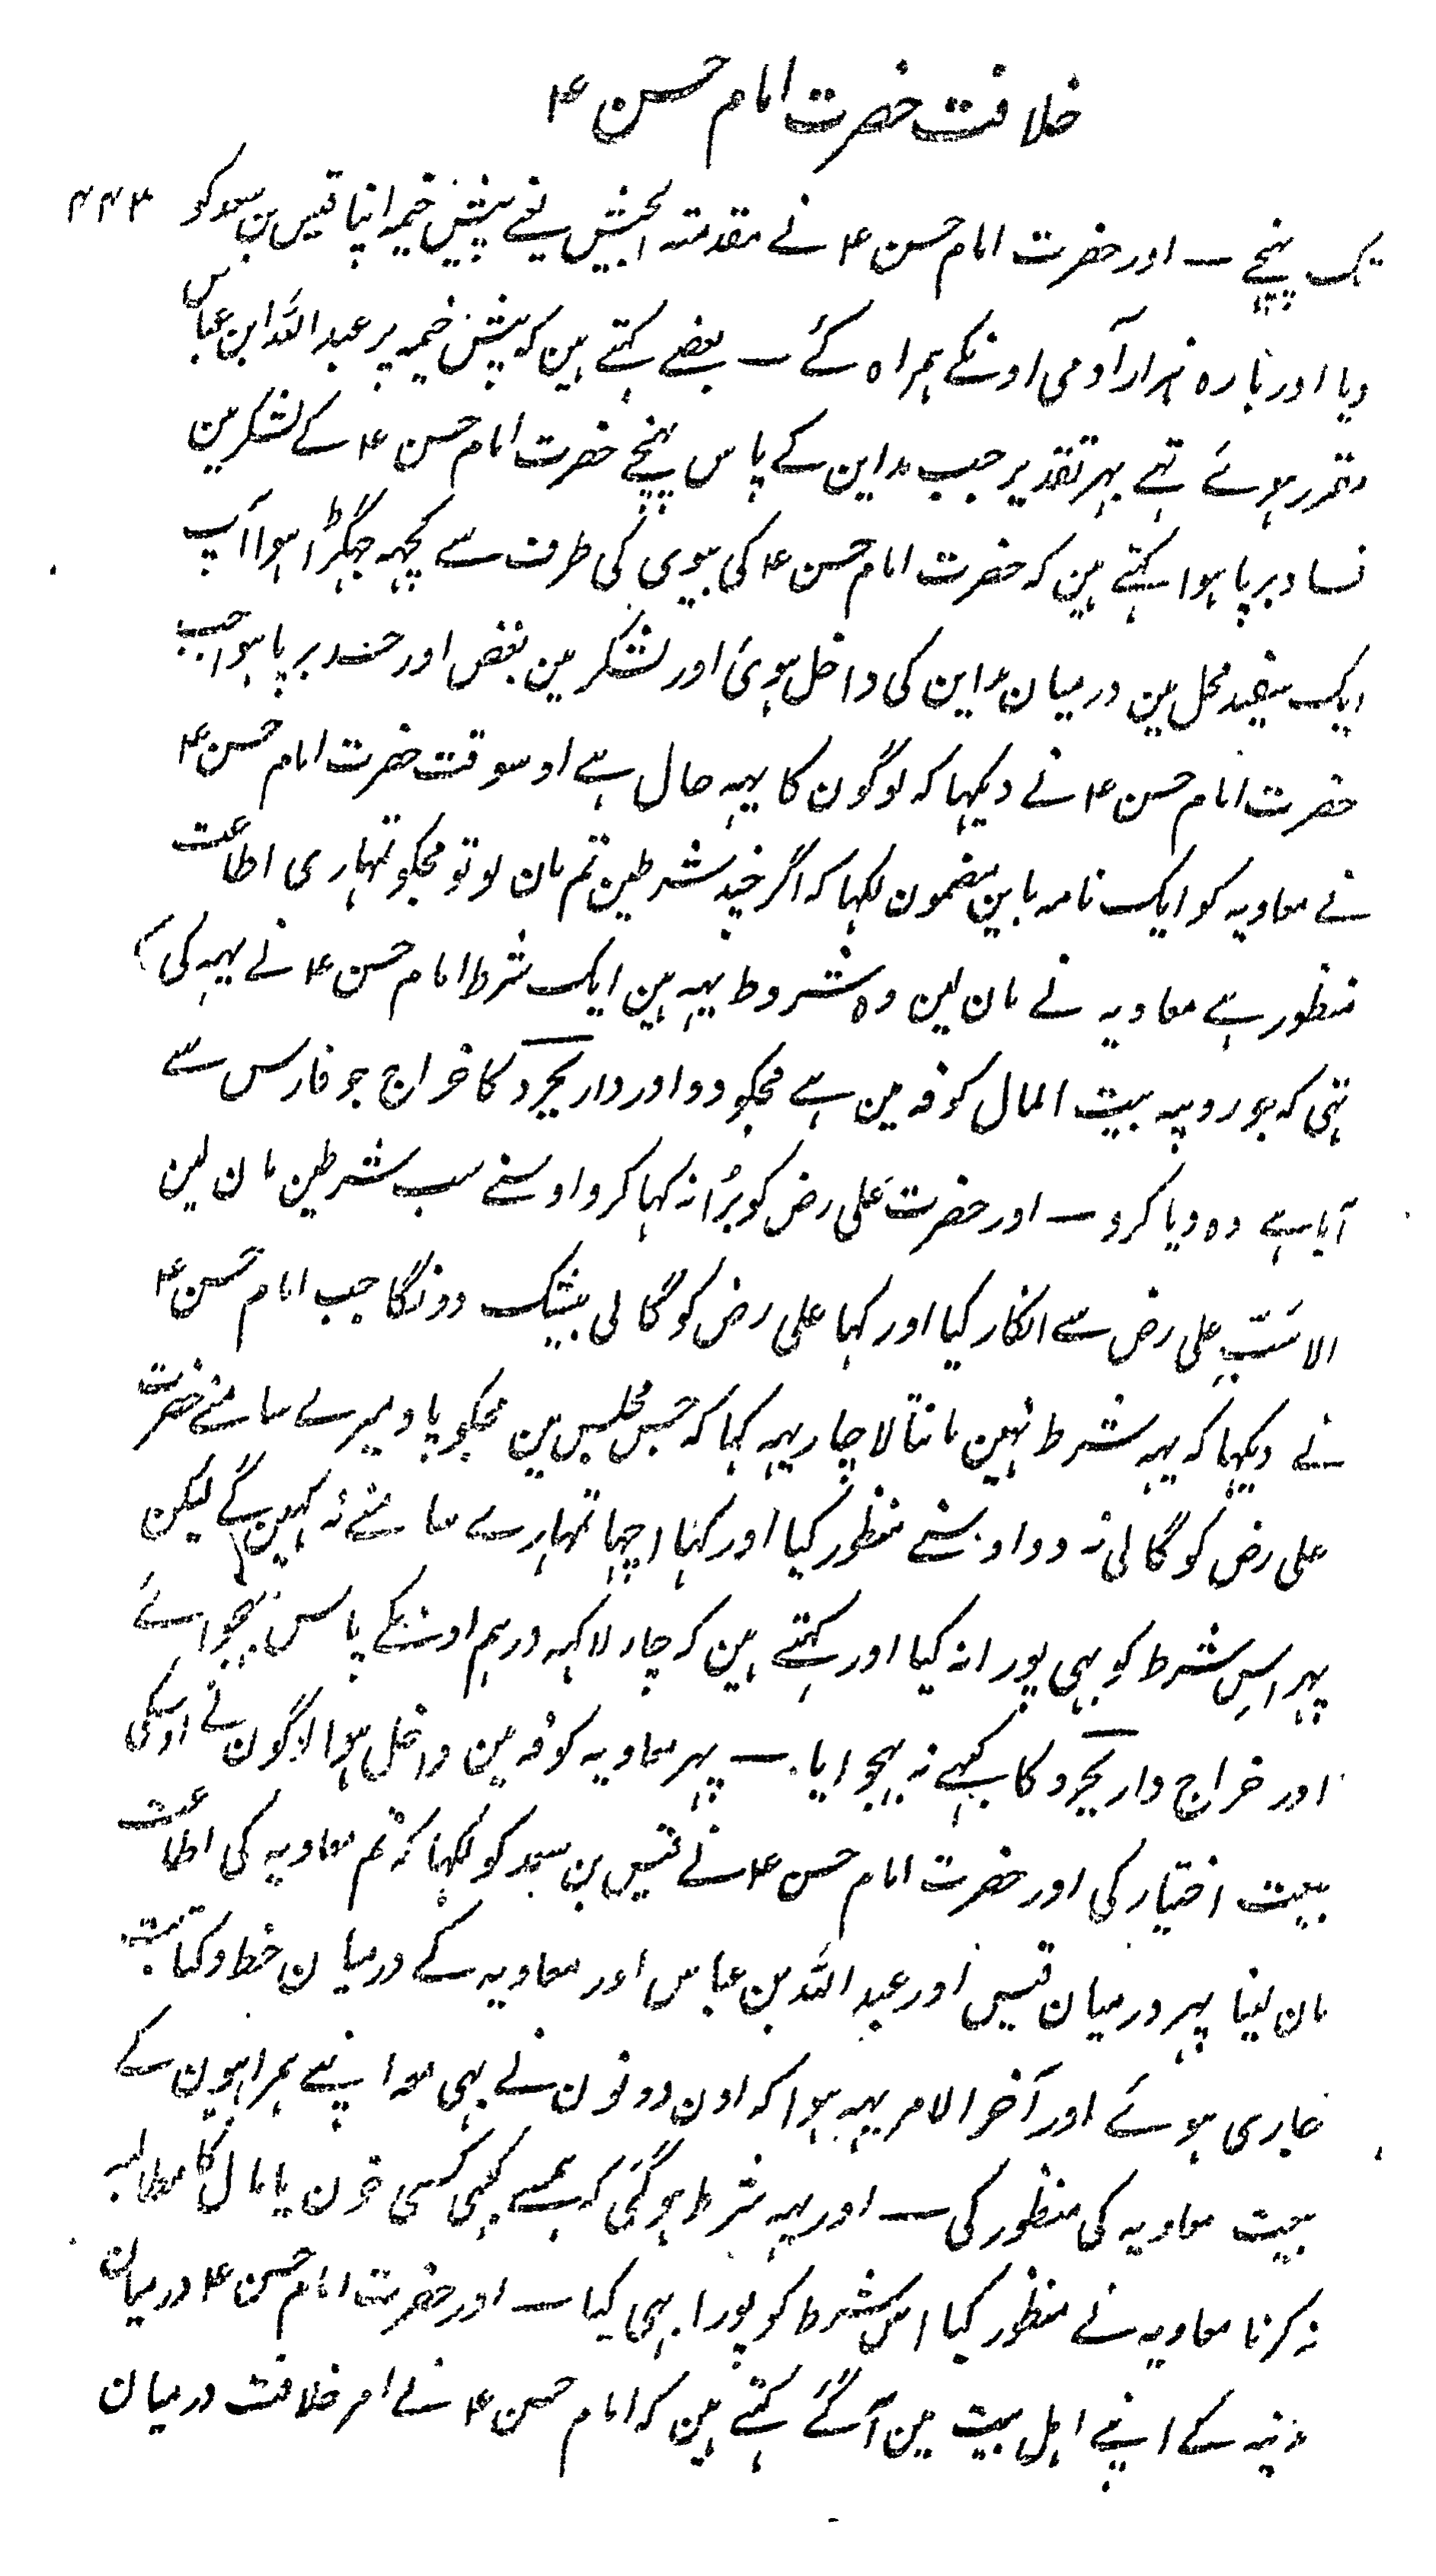 خلافت حضرت امام حسن ۴
۴۴۳
یک پہنچے ــ اور حضرت امام حسن ۴ نے مقدمتہ الجیش یعنے پیش خیمہ اپنا قیس بن سعد کو
دیا اور بارہ ہزار آدمی اونکے ہمراہ کئے ــ بعضے کہتے ہین کہ پیش خیمہ پر عبداللہ ابن عباس
مقرر ہوئے تہے بہر تقدیر جب مداین کے پاس پہنچے حضرت امام حسن ۴ کے لشکر مین
فساد برپا ہوا کہتے ہین کہ حضرت امام حسن ۴ کی بیوی کی طرف سے کچہہ جہگڑا ہوا آپ
ایک سفید محل مین درمیان مداین کی داخل ہوئی اور لشکر مین بغض اور حسد برپا ہوا جب
حضرت امام حسن ۴ نے دیکہا کہ لوگون کا یہہ حال ہے اوسوقت حضرت امام حسن ۴
نے معاویہ کو ایک نامہ باین مضمون لکہا کہ اگر چند شرطین تم مان لو تو مجکو تمہاری اطاعت
منظور ہے معاویہ نے مان لین وہ شروط یہہ ہین ایک شرط امام حسن ۴ نے یہہ کی
تہی کہ جو روپیہ بیت المال کوفہ مین ہے مجکو دو اور دارابجرد کا خراج جو فارس سے
آیا ہے وہ دیا کرو ــ اور حضرت علی رض کو برُا نہ کہا کرو اوسنے سب شرطین مان لین
الا سَبِّ علی رض سے انکار کیا اور کہا علی رض کو گالی بیشک دونگا جب امام حسن ۴
نے دیکہا کہ یہہ شرط نہین مانتا لاچار یہہ کہا کہ جس مجلس مین مجکو پاو میرے سامنے حضرت
علی رض کو گالی نہ دو اوسنے منظور کیا اور کہا اچہا تمہارے سامنے نہ کہین گے لیکن
پہر اسِ شرط کو بہی پورا نہ کیا اور کہتے ہین کہ چار لاکہہ درہم اونکے پاس بہجوائے
اور خراج دارابجرد کا کبہے نہ بہجوایا ــ پہر معاویہ کوفہ مین داخل ہوا لوگون نے اوسکی
بیعت اختیار کی اور حضرت امام حسن ۴ نے قیس بن سعد کو لکہا کہ تم معاویہ کی اطاعت
مان لینا پہر درمیان قیس اور عبداللہ بن عباس اور معاویہ کے درمیان خط و کتابت
جاری ہوئے اور آخر الامر یہہ ہوا کہ اون دونون نے بہی معہ اپنے ہمراہیون کے
بیعت معاویہ کی منظور کی ــ اور یہہ شرط ہوگئی کہ ہمسے کبہی کسی خون یا مال کا مطالبہ
نہ کرنا معاویہ نے منظور کیا اس شرط کو پورا بہی کیا ــ اور حضرت امام حسن ۴ درمیان
مدینہ کے اپنے اہل بیت مین آگئے کہتے ہین کہ امام حسن ۴ نے امر خلافت درمیان